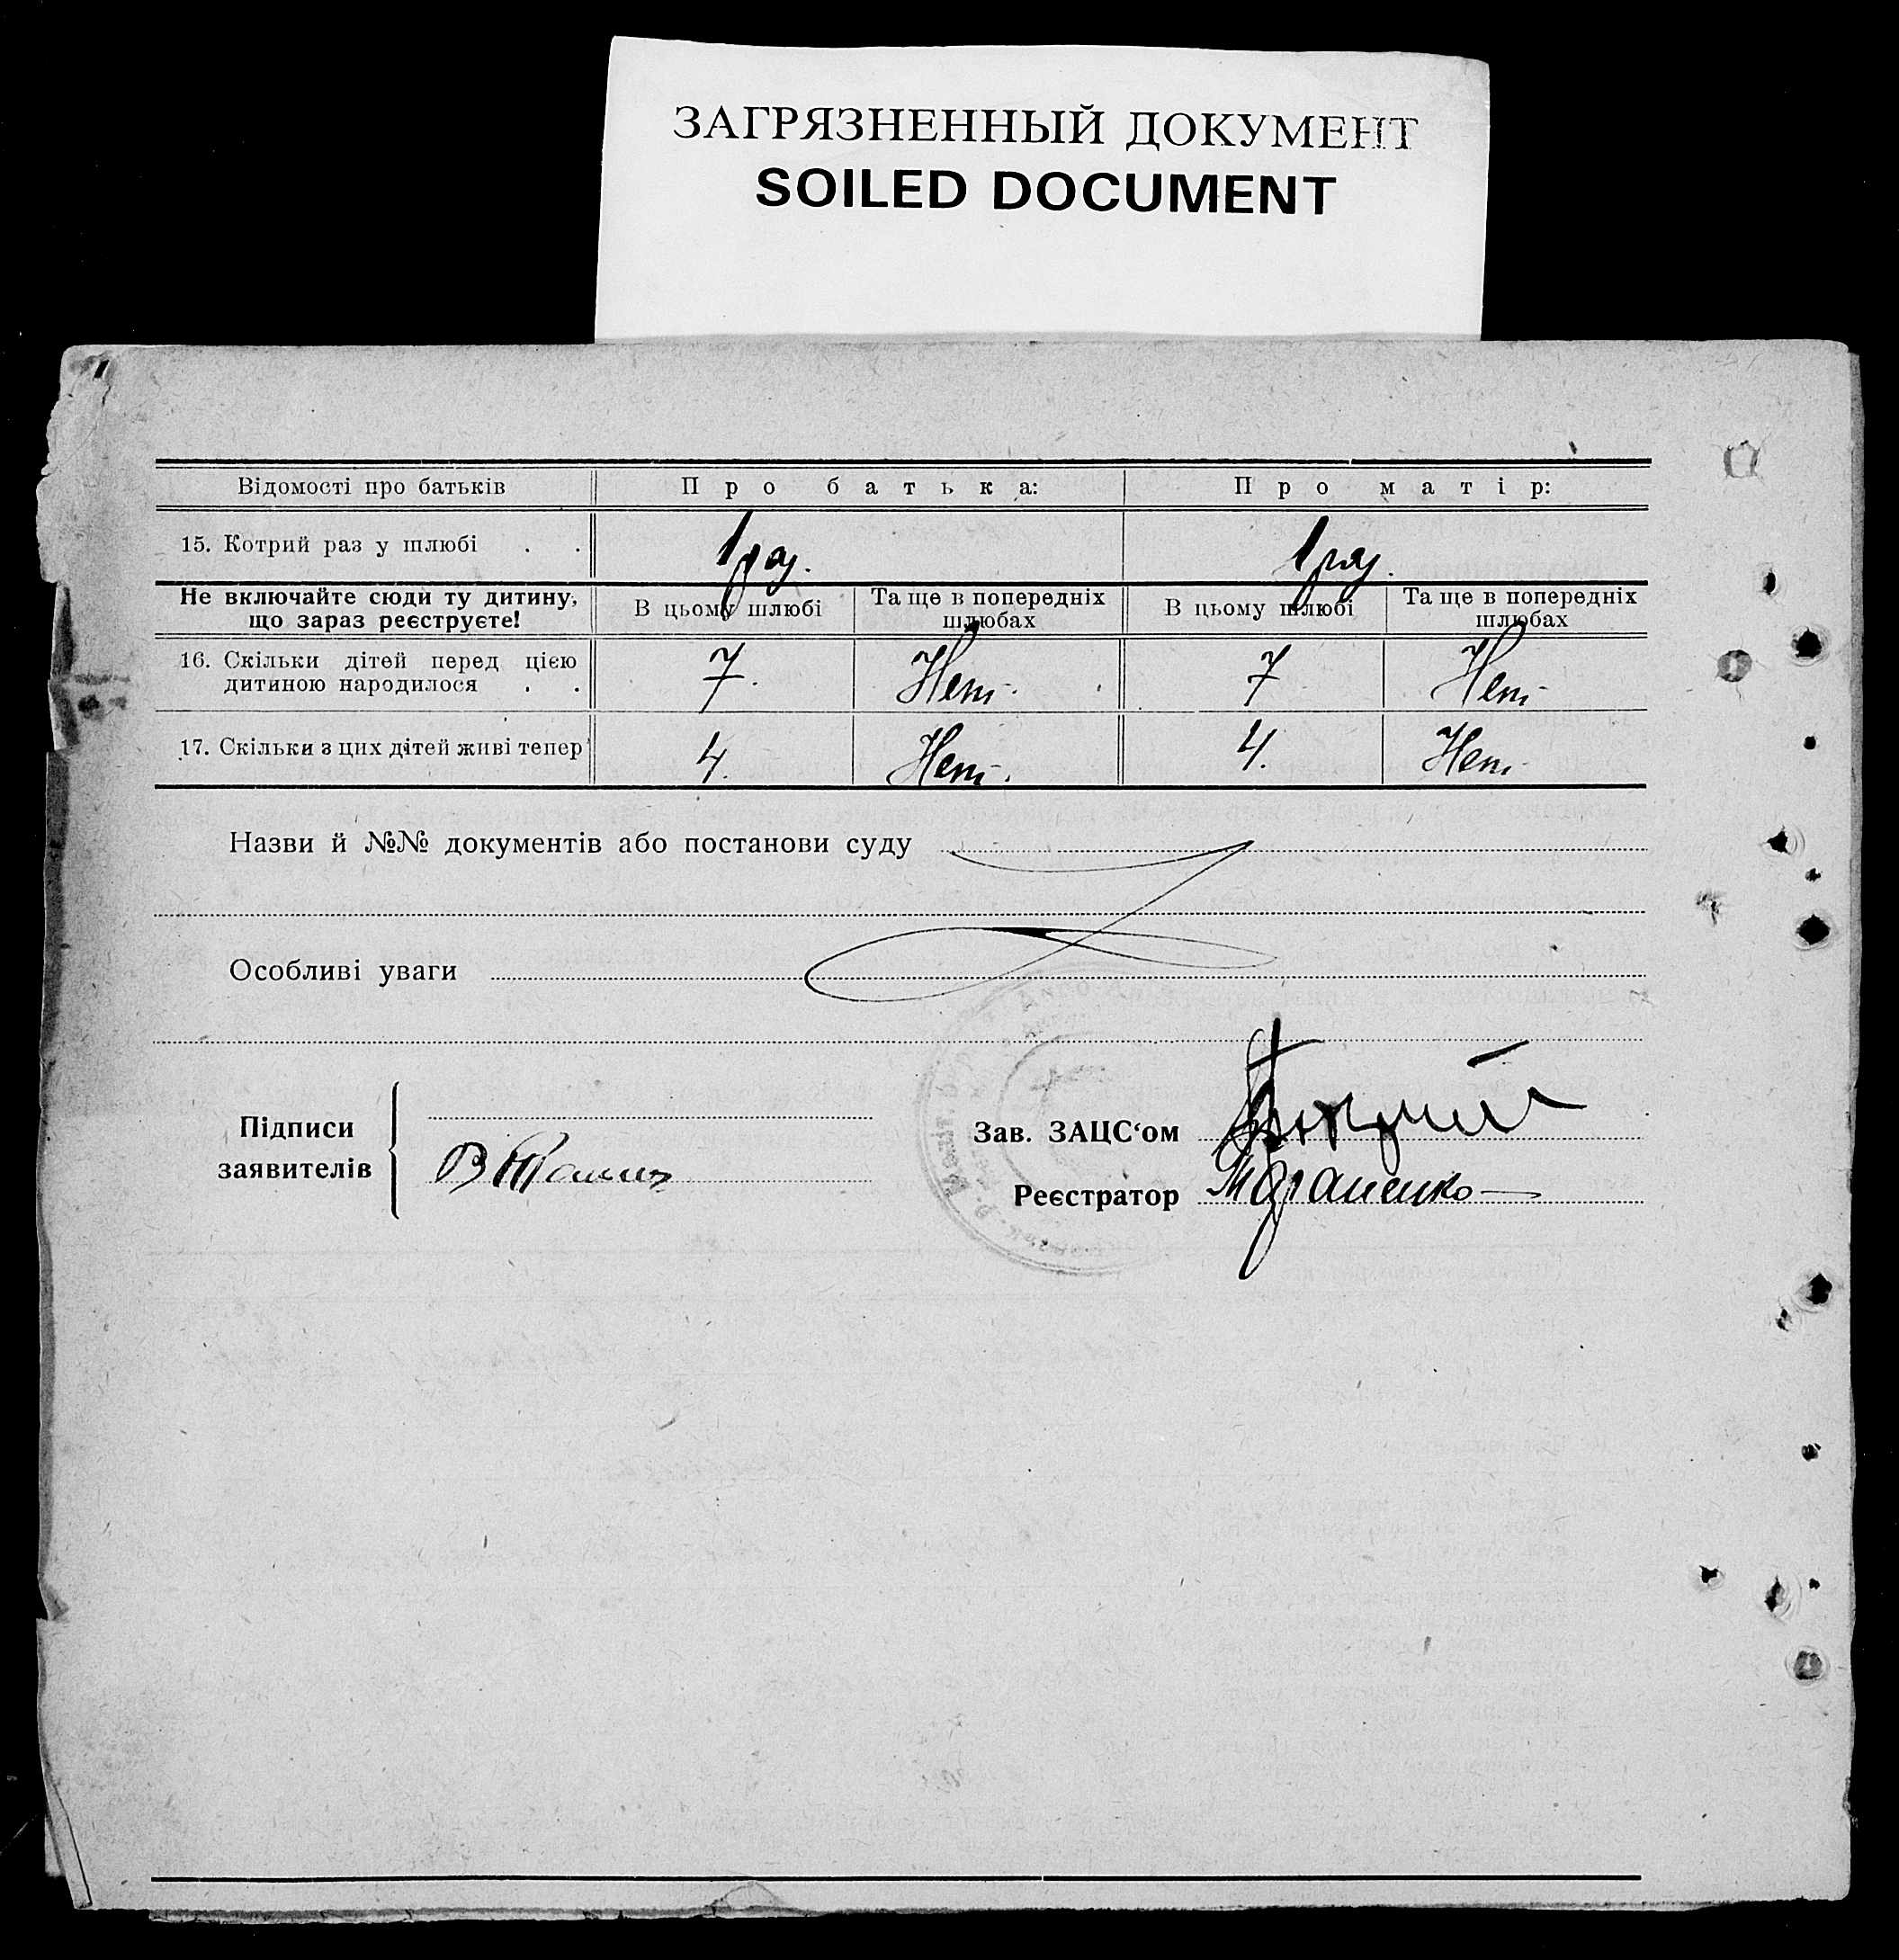 ЗАГРЯЗНЕННЫЙ ДОКУМЕНТ
SOILED DOCUMENT
Відомості про батьків Про батька: Про матір:
15. Котрий раз у шлюбі . . 1 раз. 1 раз.
Не включайте сюди ту дитину, що зараз реєструєте! В цьому шлюбі Та ще в попередніх шлюбах В цьому шлюбі Та ще в попередніх шлюбах
16. Скільки дітей перед цією
дитиною народилося . . 7. Нет. 7 Нет
17. Скільки з цих дітей живі тепер 4. Нет. 4. Нет
Назви й №№ документів або постанови суду
Особливі уваги
Підписи
заявителів
Зав. ЗАЦС‘ом
Реєстратор